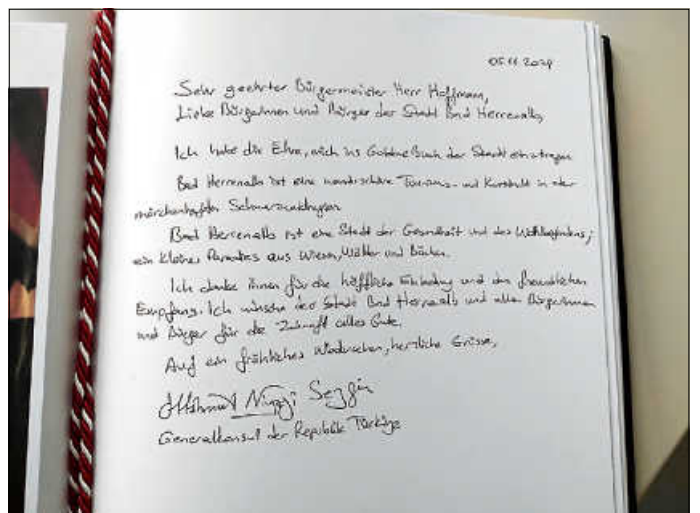 05.11.2024
Sehr geehrter Bürgermeister Herr Hoffmann,
Liebe Bürgerinnen und Bürger der Stadt Bad Herrenalb,
Ich habe die Ehre, mich ins Goldene Buch der Stadt einzutragen
Bad Herrenalb ist eine wunderschöne Tourismus- und Kurstadt in der
märchenhaften Schwarzwaldregion
Bad Herrenalb ist eine Stadt der Gesundheit und des Wohlbefindens;
ein kleines Paradies aus Wiesen, Wälder und Bächen.
Ich danke Ihnen für die höffliche Einladung und den freundlichen
Empfang. Ich wünsche der Stadt Bad Herrenalb und allen Bürgerinnen
und Bürger für die Zukunft alles Gute.
Auf ein fröhliches Wiedersehen, herzliche Grüsse,
Mahmut Niyazi Sezgin
Generalkonsul der Republik Türkiye